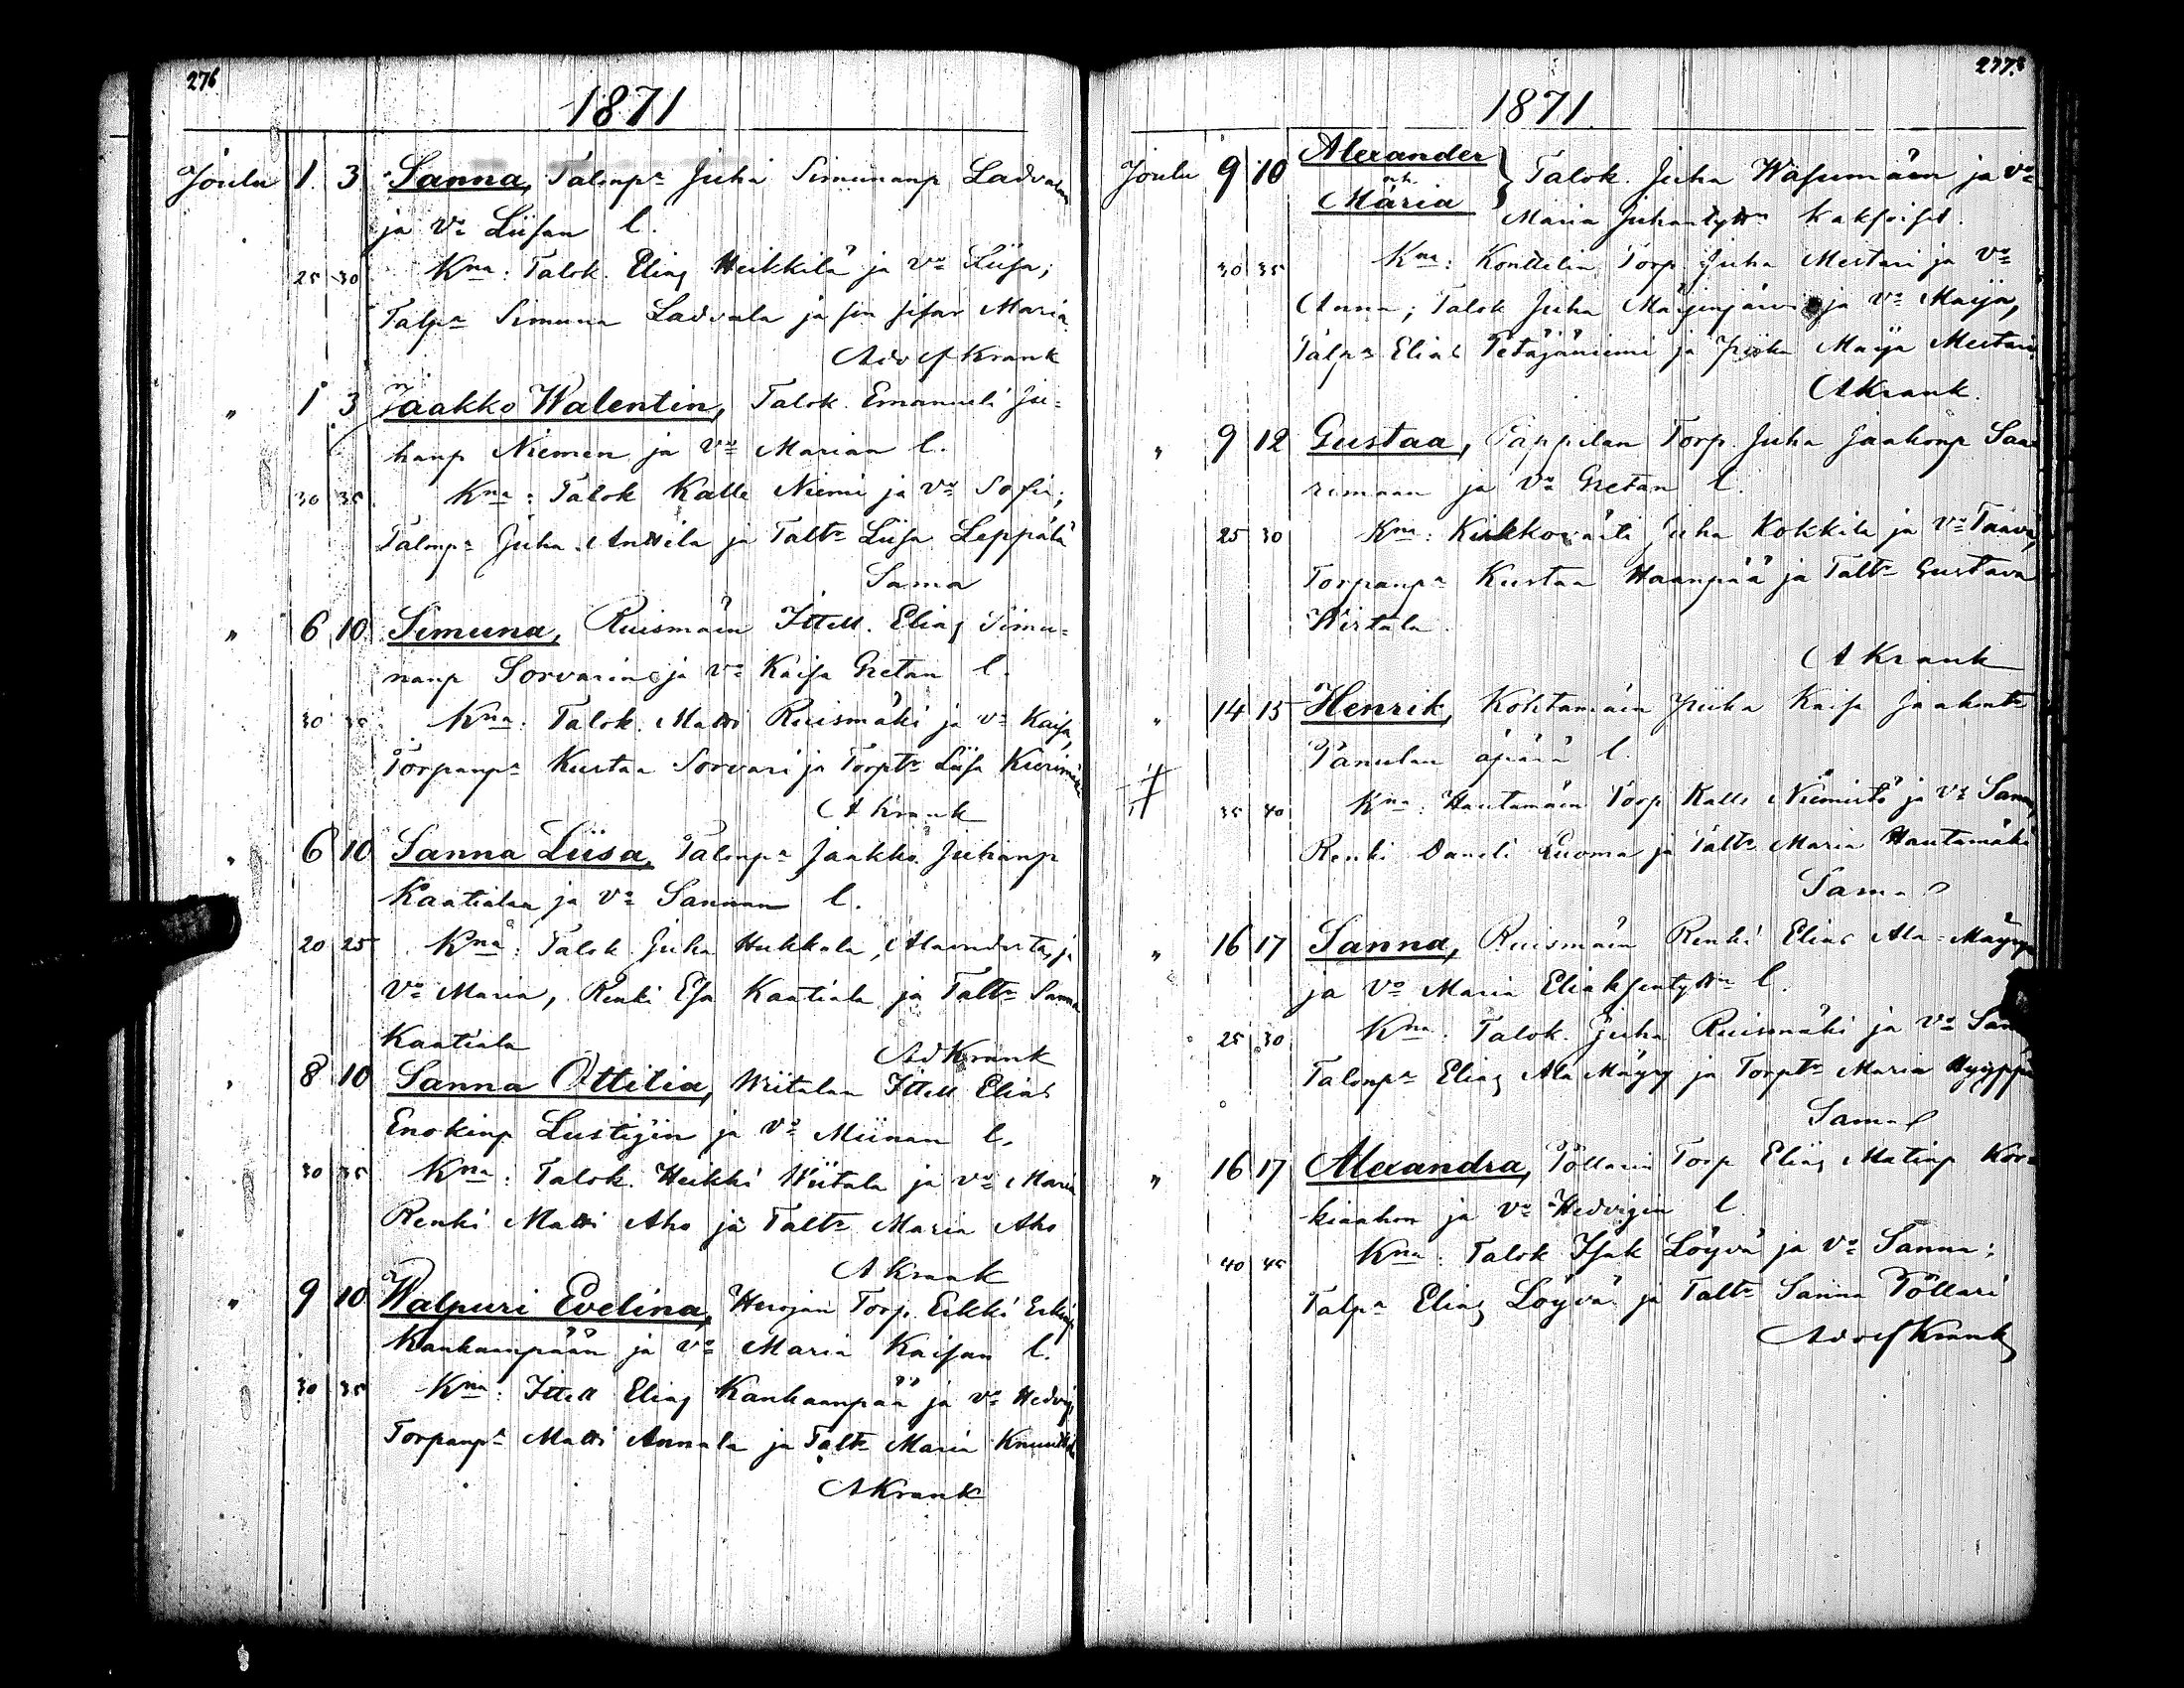 276
1871
Joulu 1. 3 Sanna, Talonp. Juha Simunanp Ladvalan
ja Vo Liisan l.
25 30 Kna: Talok. Elias Heikkilä ja Vo Liisa;
Talp. Simuna Ladvala ja sen sisar Maria.
Adolf Krank
" 1 3 Jaakko Walentin, Talok. Emanueli Ju-
hanp Niemen ja Vo Marian l.
30 35 Kna: Talok Kalle Niemi ja Vo Sofia;
Talonp. Juha Anttila ja Talt. Liisa Leppälä
Sama
" 6 10 Simuna, Ruismäen Ittell. Elias Simu-
nanp Sorvarin ja Vo Kaisa Gretan l.
30 35 Kna: Talok. Matti Ruismäki ja Vo Kaisa,
Torpanp. Kustaa Sorvari ja Torpt. Liisa
A Krank
" 6 10 Sanna Liisa, Talonp. Jaakko Juhanp
Kaatialan ja Vo Sannan l.
20 25 Kna: Talok. Juha Hukkala, Alavudesta, ja
Vo Maria, Renki Esa Kaatiala ja Talt. Sanna
Kaatiala
Ad Krank
" 8 10 Sanna Ottilia, Wiitalan Ittell Elias
Enokinp Lustigin ja Vo Miinan l.
30 35 Kna: Talok. Heikki Wiitala ja Vo Maria
Renki Matti Aho ja Talt. Maria Aho
A Krank
" 9 10 Walpuri Evelina, Herojan Torp. Erkki Erkinp
Kankaanpään ja Vo Maria Kaisan l.
30 35 Kna: Ittell Elias Kankaanpää ja Vo Hedvig,
Torpanp. Matti Annala ja Talt. Maria Knuuttila
A Krank
277.
1871
Joulu 9 10 Alexander
n.h.
Maria
Talok. Juha Wasumäen ja Vo
Maria Juhantyttn kaksoiset.
30 35 Kna: Konttilin Torp. Juha Mertari ja Vo
Anna; Talok Juha Mäyenjärvi ja Vo Maija,
Talp. Elias Petäjäniemi ja Piika Maija Mertari
A Krank.
" 9 12 Gustaa, Pappilan Torp. Juha Jaakonp Saa-
rimaan ja Vo Gretan l.
25 30 Kna: Kirkkoväärti Juha Kokkila ja Vo Taava,
Torpanp. Kustaa Haanpää ja Talt. Gustava
Wirtala.
A Krank
" 14 15 Henrik, Kohtamäen Piika Kaisa Jaakont.
Panulan äpärä l.
35 40 Kna: Hautamäen Torp. Kalle Niemistö ja Vo Sanna,
Renki Daneli Luoma ja Talt. Maria Hautamäki
Sama
" 16 17 Sanna, Ruismäen Renki Elias Ala-Mäyryn
ja Vo Maria Eliaksentyttn l.
25 30 Kna: Talok. Juha Ruismäki ja Vo
Talonp. Elias Ala Mäyry ja Torpt. Maria Hyyppä
Sama
" 16 17 Alexandra, Pöllarin Torp Elias Matinp Kor-
kiaahon ja Vo Hedvigin l
40 45 Kna: Talok Isak Löyvä ja Vo Sanna;
Talp. Elias Löyvä ja Talt. Sanna Pöllari
Adolf Krank